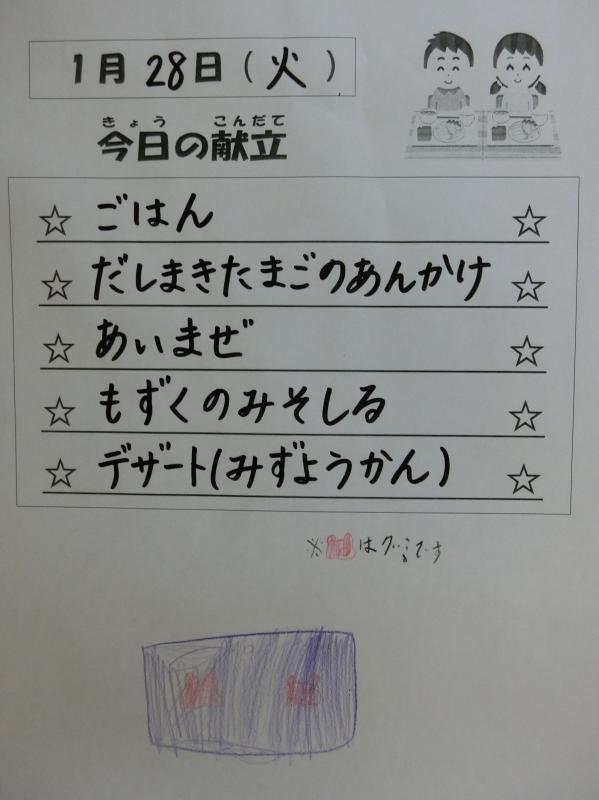 1月28日(火)
きょう こんだて
今日の献立
☆ ごはん ☆
☆ だしまきたまごのあんかけ ☆
☆ あいまぜ ☆
☆ もずくのみそしる ☆
☆ デザート(みずようかん) ☆
※ はグミです